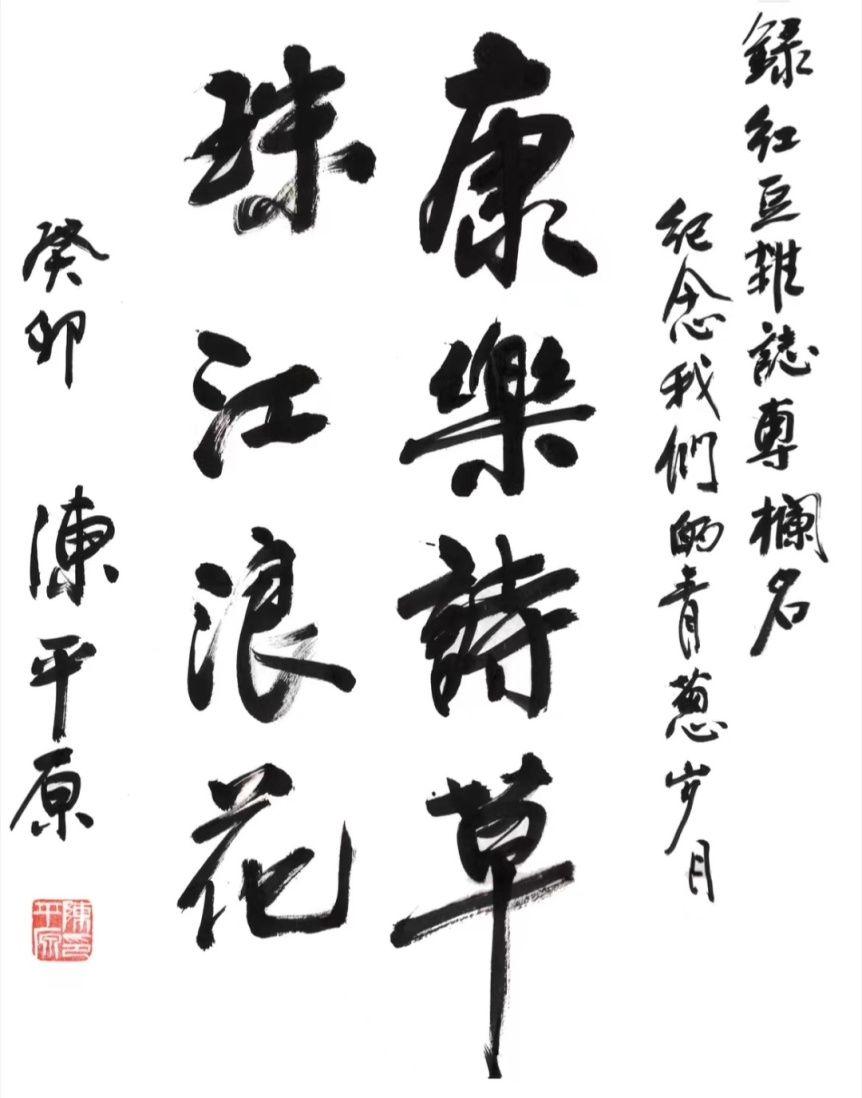 錄紅豆雜誌專欄名
紀念我們的青蔥岁月
康樂詩草
珠江浪花
癸卯 陳平原
陳平原印